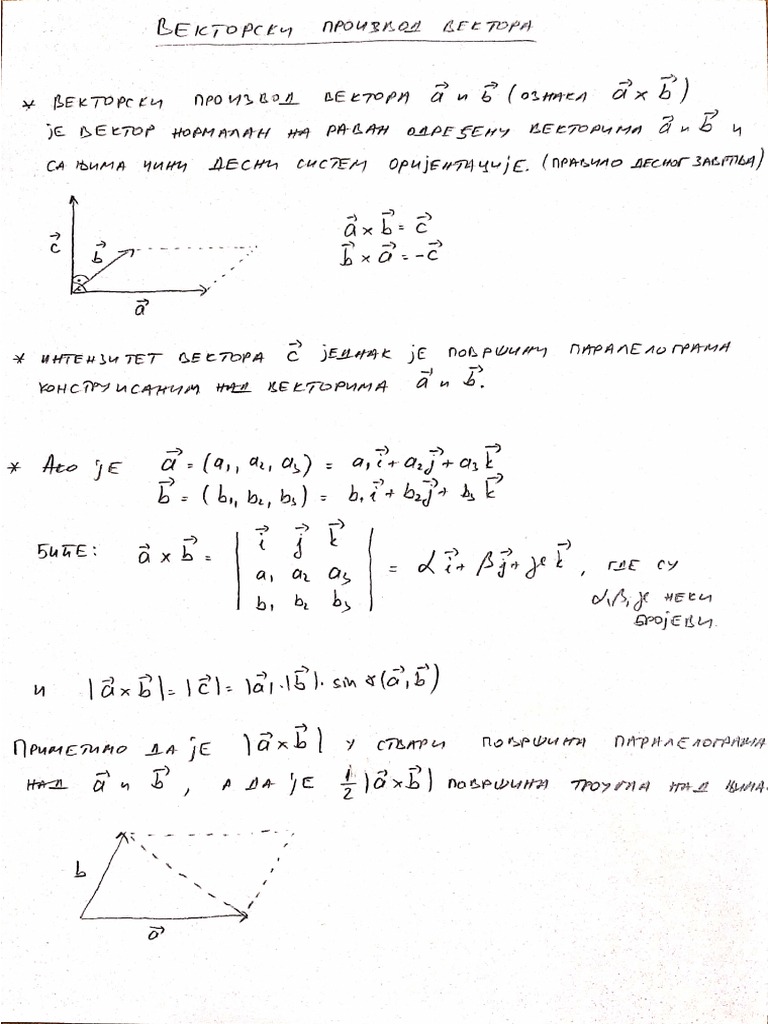 ВЕКТОРСКИ ПРОИЗВОД ВЕКТОРА
* ВЕКТОРСКИ ПРОИЗВОД ВЕКТОРА a⃗ и b⃗ (ОЗНАКА a⃗ × b⃗)
ЈЕ ВЕКТОР НОРМАЛАН НА РАВАН ОДРЕЂЕНУ ВЕКТОРИМА a⃗ и b⃗ И
СА ЊИМА ЧИНИ ДЕСНИ СИСТЕМ ОРИЈЕНТАЦИЈЕ. (ПРАВИЛО ДЕСНОГ ЗАВРТЊА)
a⃗ × b⃗ = c⃗
b⃗ × a⃗ = -c⃗
c⃗ b⃗
a⃗
* ИНТЕНЗИТЕТ ВЕКТОРА c⃗ ЈЕДНАК ЈЕ ПОВРШИНИ ПАРАЛЕЛОГРАМА
КОНСТРУИСАНИМ НАД ВЕКТОРИМА a⃗ и b⃗.
* АКО ЈЕ a⃗ = (a₁, a₂, a₃) = a₁i⃗ + a₂j⃗ + a₃k⃗
b⃗ = (b₁, b₂, b₃) = b₁i⃗ + b₂j⃗ + b₃k⃗
БИЋЕ: a⃗ × b⃗ = | i⃗ j⃗ k⃗ |
| a₁ a₂ a₃ | = αi⃗ + βj⃗ + γk⃗, ГДЕ СУ
| b₁ b₂ b₃ | α, β, γ НЕКИ
БРОЈЕВИ.
И |a⃗ × b⃗| = |c⃗| = |a⃗| · |b⃗| · sin ∢(a⃗, b⃗)
ПРИМЕТИМО ДА ЈЕ |a⃗ × b⃗| У СТВАРИ ПОВРШИНА ПАРАЛЕЛОГРАМА
НАД a⃗ и b⃗, А ДА ЈЕ 1/2 |a⃗ × b⃗| ПОВРШИНА ТРОУГЛА НАД ЊИМА.
b
a⃗